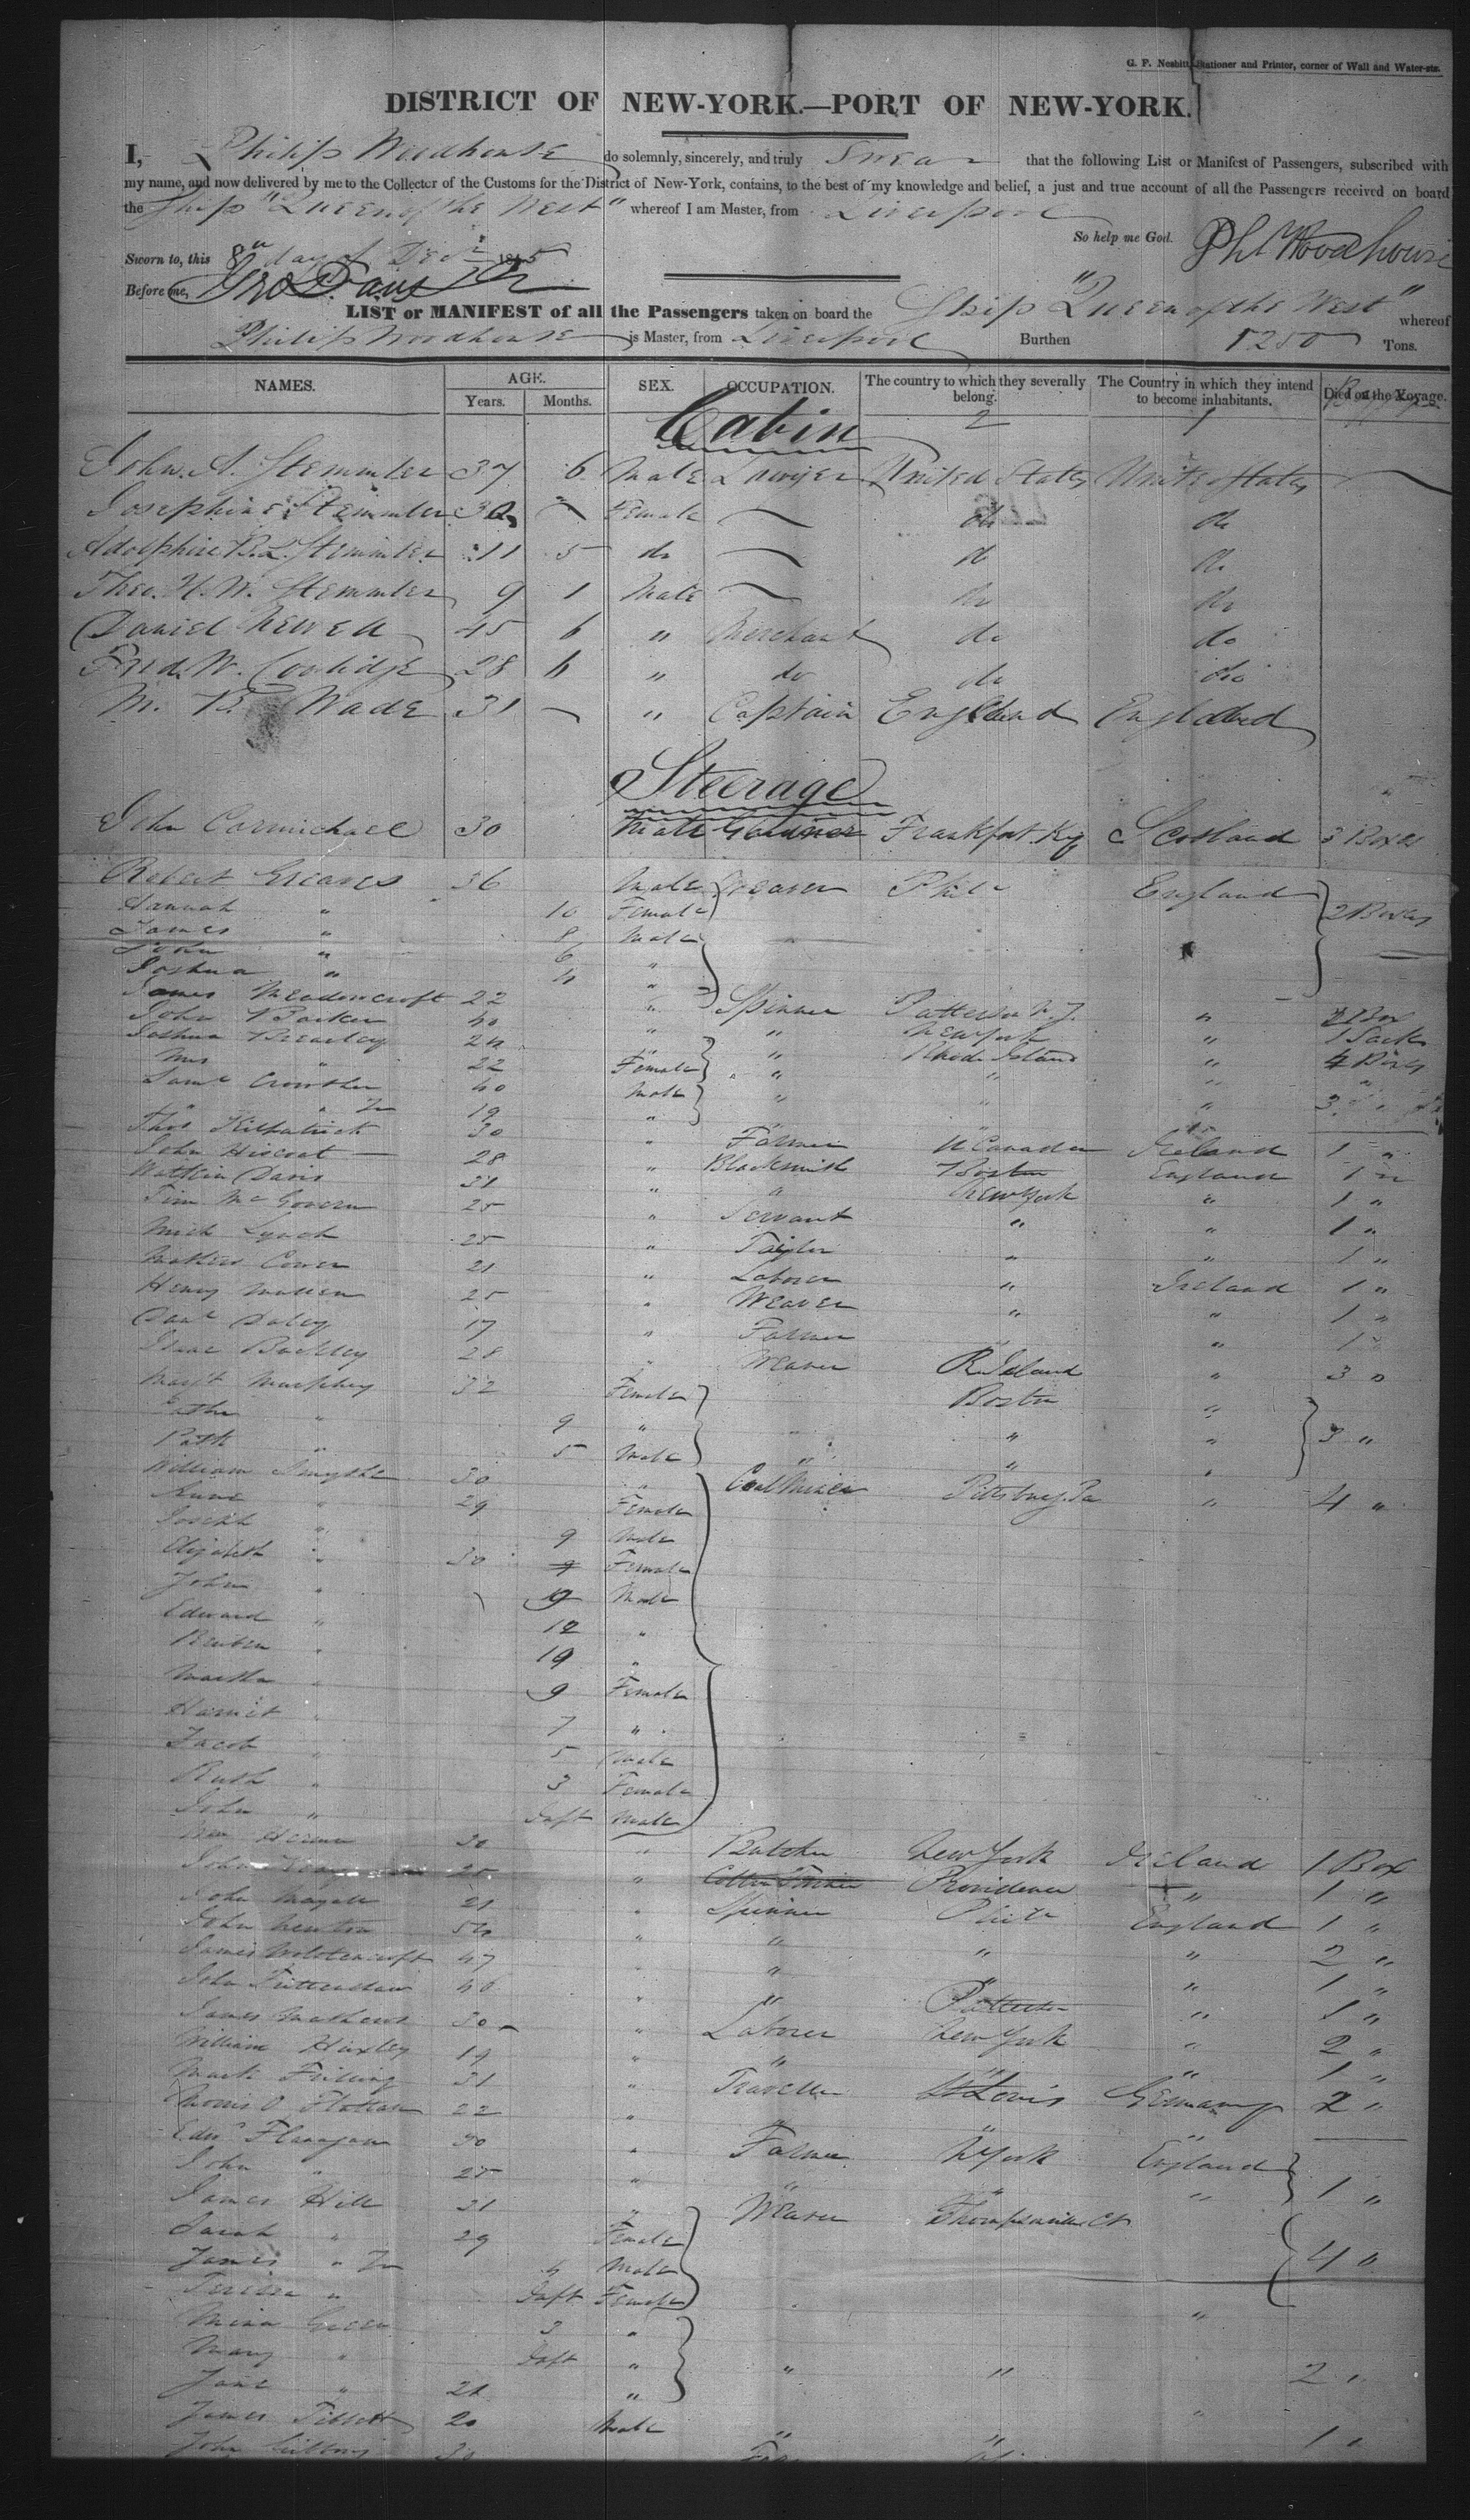 G. F. Nesbitt, Stationer and Printer, corner of Wall and Water-sts.
DISTRICT OF NEW-YORK.—PORT OF NEW-YORK.
I, Philip Woodhouse do solemnly, sincerely, and truly Swear that the following List or Manifest of Passengers, subscribed with
my name, and now delivered by me to the Collector of the Customs for the District of New-York, contains, to the best of my knowledge and belief, a just and true account of all the Passengers received on board
the Ship "Queen of the West" whereof I am Master, from Liverpool
So help me God. Phl Woodhouse
Sworn to, this 8th day of Decr 1845
Before me, Geo Davis
LIST or MANIFEST of all the Passengers taken on board the Ship "Queen of the West" whereof
Philip Woodhouse is Master, from Liverpool Burthen 1250 Tons.
NAMES. AGE. SEX. OCCUPATION. The country to which they severally belong. The Country in which they intend to become inhabitants. Died on the Voyage.
Years. Months.
2 1
Cabin
John A. Stemmler 37 6 Male Lawyer United States United States
Josephine Stemmler 30 " Female do do
Adolphine B. L. Stemmler 11 5 do do do
Theo. H. W. Stemmler 9 1 Male do do
Daniel Newell 45 6 " Merchant do do
Fred. W. Coolidge 28 6 " do do do
M. B. Wade 31 " Captain England England
Steerage
John Carmichael 30 Male Frankfort Ky Scotland 3 Boxes
Robert Greaves 36 Male Weaver Phila England 2 Boxes
Hannah " 10 Female
James " 8 Male
John " 6 "
Joshua " 4 "
James Meadowcroft 22 " Spinner Patterson N.J. " 2 Box
John Parker 40 " " New York " 1 Sack
Joshua Brearley 24 " " Rhode Island " 4 Boxes
Mrs " 22 Female " " " "
Saml Crowther 40 Male " " " 3 "
" " Jr 19 "
Thos Kilpatrick 30 " Farmer U Canada Ireland 1 "
John Hiscoat 28 " Blacksmith Boston England 1 "
Watkin Davis 31 " " New York " 1 "
Tim McGovern 25 " Servant " " 1 "
Mich Lynch 25 " Taylor " " 1 "
21 " Laborer " Ireland 1 "
Henry 25 " Weaver " " 1 "
Danl Daley 17 " Farmer " " 1 "
Isaac Buckley 28 " Weaver R. Island " 3 "
Margt Murphey 32 Female Boston " 3 "
Cathe " 9 " " "
Patk " 5 Male " " "
William Smythe 30 " Coal Miner Pittsburg Pa " 4 "
Anne " 29 Female
Joseph " 9 Male
Elizabeth " 30 Female
John " 9 Male
Edward " 12 "
Reuben " 19 "
Martha " 9 Female
Harriet " 7 "
Jacob " 5 Male
Ruth " 3 Female
John " Inft Male
30 " Butcher New York Ireland 1 Box
John 25 " Providence " 1 "
John Mayall 21 " Spinner Phila England 1 "
John Newton 54 " " " " 2 "
James Wolstencroft 47 " " " " 1 "
John 40 " " Patterson " 1 "
James Mathews 30 " Laborer New York " 2 "
William Huxley 19 " " " " 1 "
Mark 31 " Traveller St Louis Germany 2 "
Morris 22 " " " "
Edwd Flanagan 50 " Farmer N York England 1 "
John " 25 " " " "
James Hill 31 " Weaver Thompsonville Ct 4 "
Sarah " 29 Female
James " Jr 4 Male
Teresa " Inft Female
Green 3 " "
Mary " Inft " " " 2 "
Jane " 21 "
James 20 Male " " " 1 "
John 30